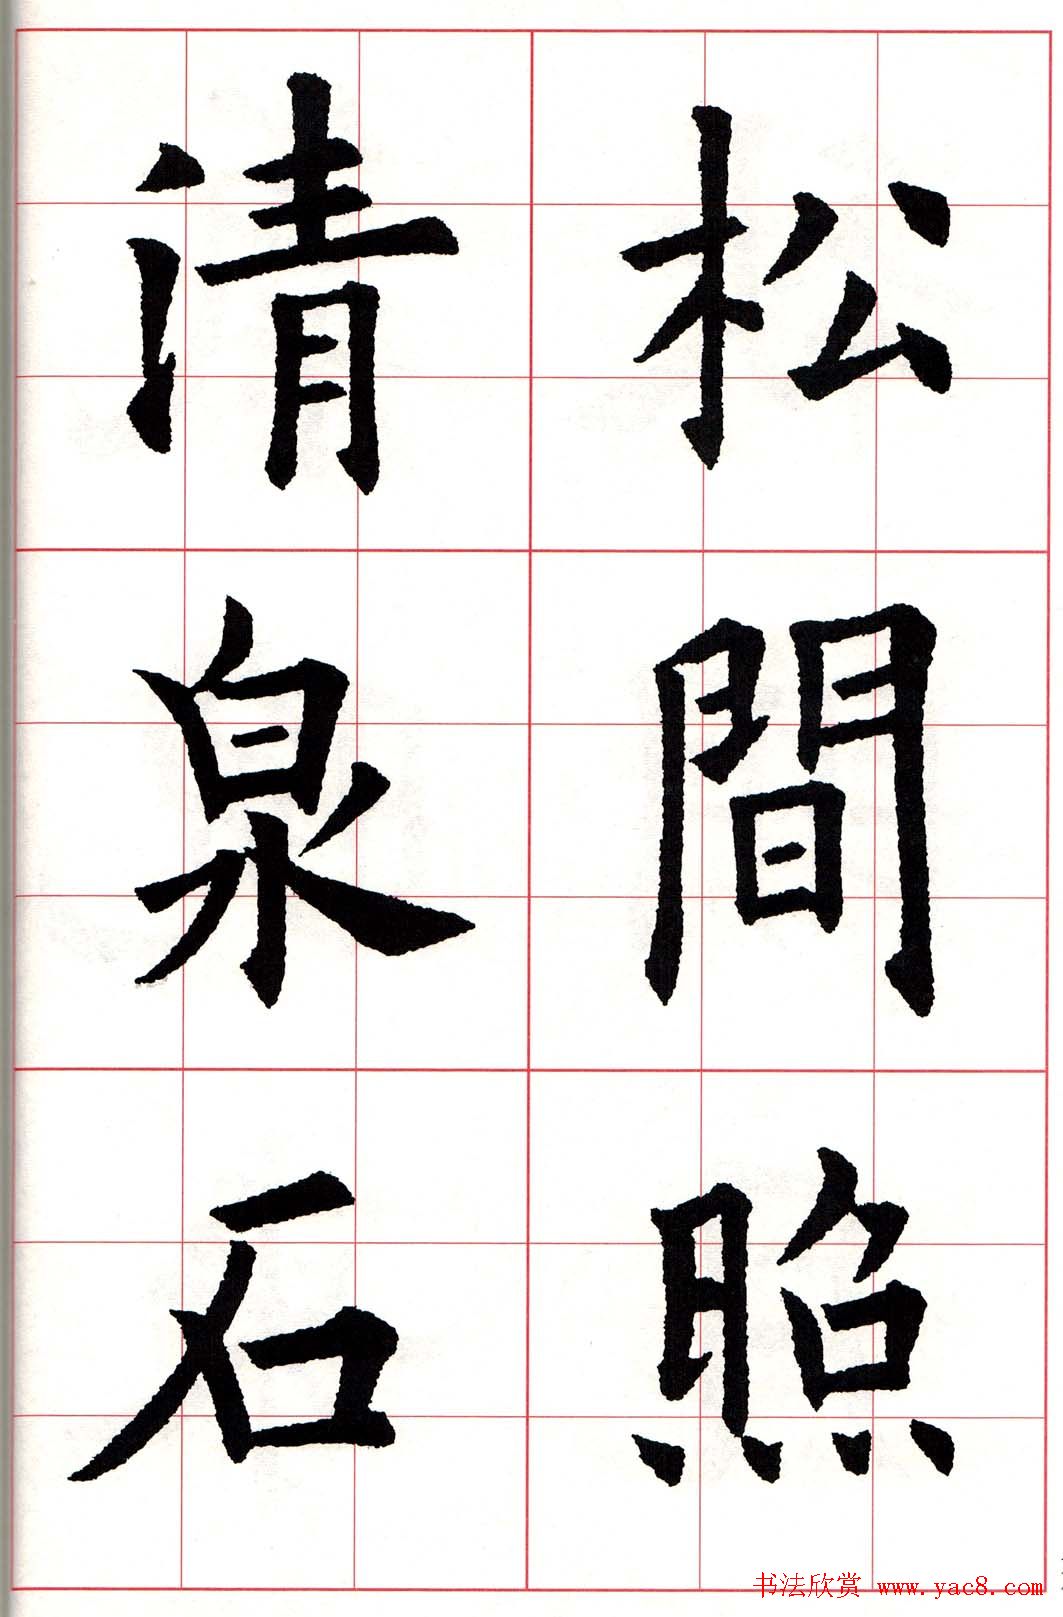 松間照
清泉石
书法欣赏 www.yac8.com